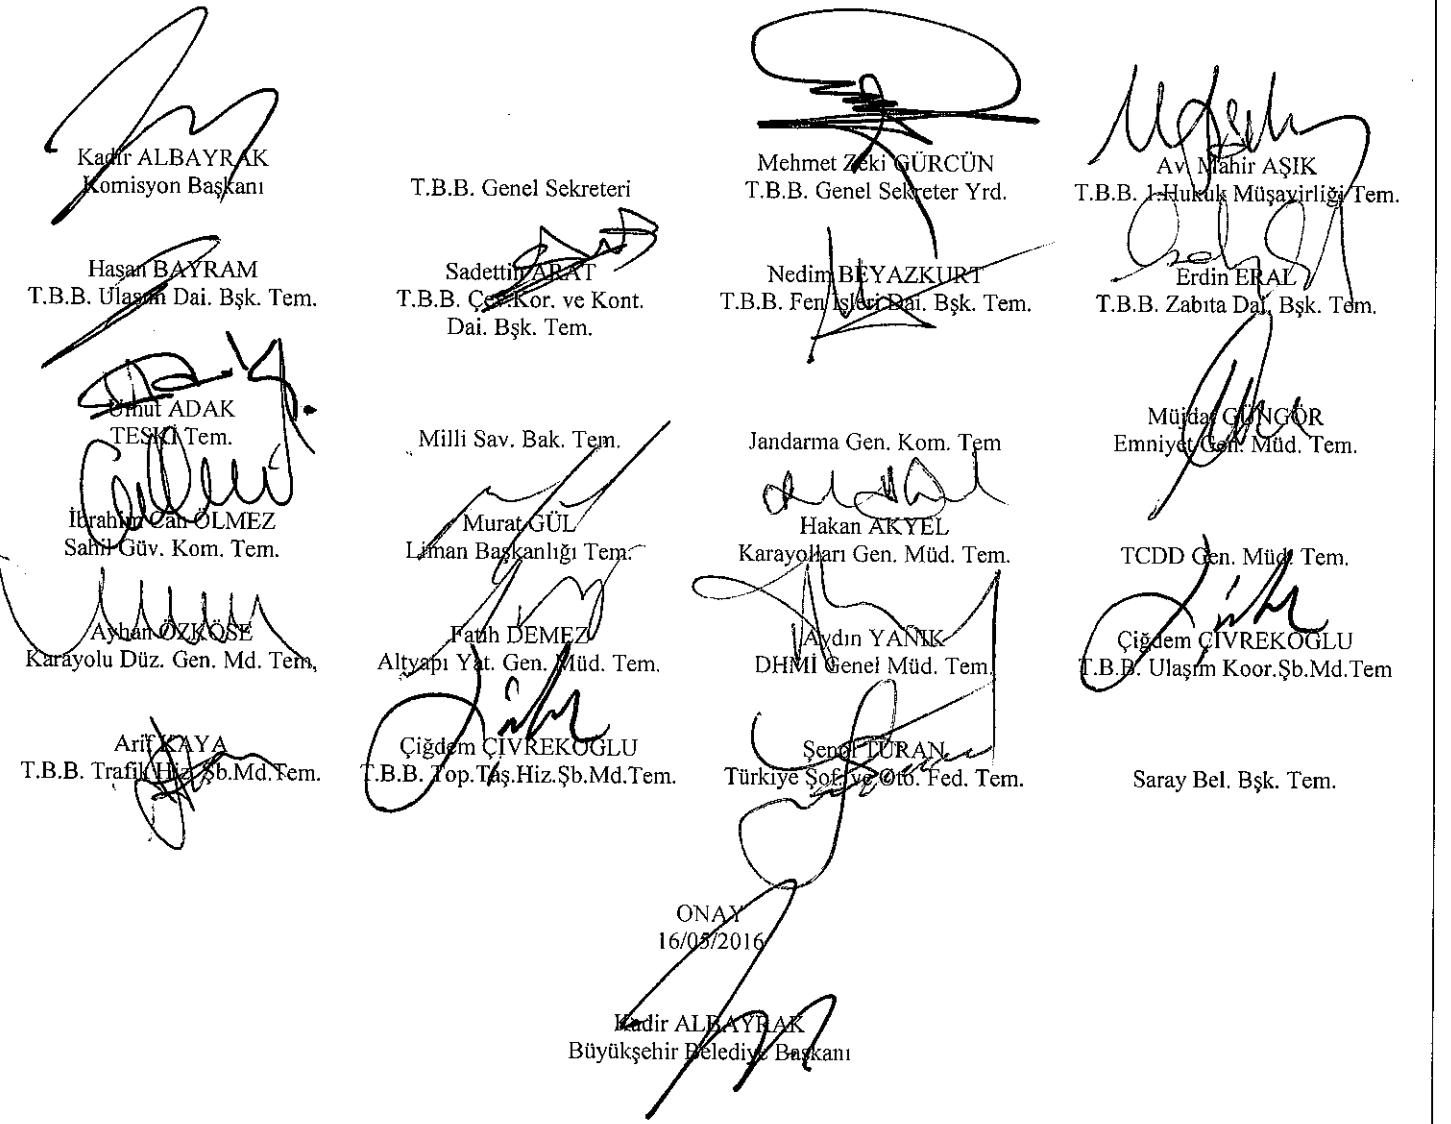 Kadir ALBAYRAK
Komisyon Başkanı
T.B.B. Genel Sekreteri
Mehmet Zeki GÜRCÜN
T.B.B. Genel Sekreter Yrd.
Av. Mahir AŞIK
T.B.B. 1.Hukuk Müşavirliği Tem.
Hasan BAYRAM
T.B.B. Ulaşım Dai. Bşk. Tem.
Sadettin ARAT
T.B.B. Çev.Kor. ve Kont.
Dai. Bşk. Tem.
Nedim BEYAZKURT
T.B.B. Fen İşleri Dai. Bşk. Tem.
Erdin ERAL
T.B.B. Zabıta Dai. Bşk. Tem.
Umut ADAK
TESKİ Tem.
Milli Sav. Bak. Tem.
Jandarma Gen. Kom. Tem
Müjdat GÜNGÖR
Emniyet Gen. Müd. Tem.
İbrahim Can ÖLMEZ
Sahil Güv. Kom. Tem.
Murat GÜL
Liman Başkanlığı Tem.
Hakan AKYEL
Karayolları Gen. Müd. Tem.
TCDD Gen. Müd. Tem.
Ayhan ÖZKÖSE
Karayolu Düz. Gen. Md. Tem,
Fatih DEMEZ
Altyapı Yat. Gen. Müd. Tem.
Aydın YANIK
DHMİ Genel Müd. Tem.
Çiğdem ÇİVREKOĞLU
T.B.B. Ulaşım Koor.Şb.Md.Tem
Arif KAYA
T.B.B. Trafik Hiz.Şb.Md.Tem.
Çiğdem ÇİVREKOĞLU
T.B.B. Top.Taş.Hiz.Şb.Md.Tem.
Şenol TURAN
Türkiye Şof. ve Oto. Fed. Tem.
Saray Bel. Bşk. Tem.
ONAY
16/05/2016
Kadir ALBAYRAK
Büyükşehir Belediye Başkanı